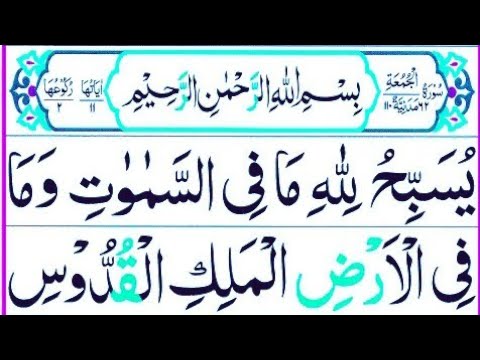 سُوْرَةُ الْجُمُعَةِ ٦٢ مَدَنِيَّةٌ ١١٠
بِسْمِ اللهِ الرَّحْمٰنِ الرَّحِيْمِ
اٰيَاتُهَا ١١ رُكُوْعُهَا ٢
يُسَبِّحُ لِلّٰهِ مَا فِى السَّمٰوٰتِ وَمَا
فِى الْاَرْضِ الْمَلِكِ الْقُدُّوْسِ